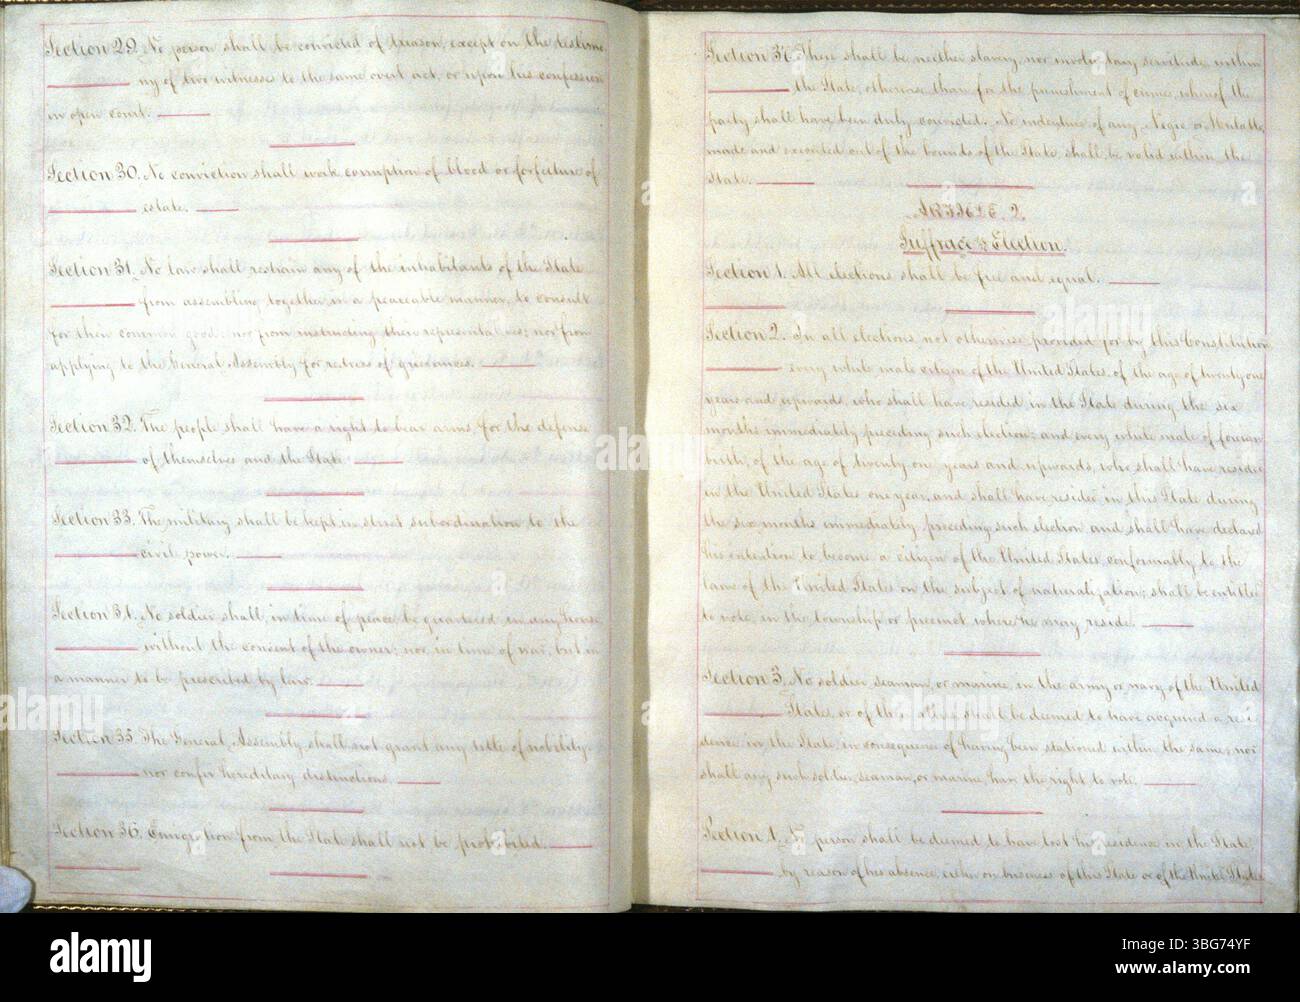 Section 29. No person shall be convicted of treason, except on the testimo
ny of two witnesses to the same overt act, or upon his confession
in open court.
Section 30. No conviction shall work corruption of blood or forfeiture of
estate.
Section 31. No law shall restrain any of the inhabitants of the State
from assembling together in a peaceable manner, to consult
for their common good; nor from instructing their representatives; nor from
applying to the General Assembly for redress of grievances.
Section 32. The people shall have a right to bear arms, for the defense
of themselves and the State.
Section 33. The military shall be kept in strict subordination to the
civil power.
Section 34. No soldier shall, in time of peace, be quartered in any house
without the consent of the owner; nor, in time of war, but in
a manner to be prescribed by law.
Section 35. The General Assembly shall not grant any title of nobility
nor confer hereditary distinctions.
Section 36. Emigration from the State shall not be prohibited.
Section 37. There shall be neither slavery, nor involuntary servitude, within
the State, otherwise than for the punishment of crimes, whereof the
party shall have been duly convicted. No indenture of any Negro or Mulatto,
made and executed out of the bounds of the State, shall be valid within the
State.
ARTICLE 2.
Suffrage & Election.
Section 1. All elections shall be free and equal.
Section 2. In all elections, not otherwise provided for by this Constitution
every white male citizen of the United States, of the age of twenty one
years and upwards, who shall have resided in the State during the six
months immediately preceding such election; and every white male of foreign
birth, of the age of twenty one years and upwards, who shall have resided
in the United States one year, and shall have resided in this State during
the six months immediately preceding such election and shall have declared
his intention to become a citizen of the United States, conformably to the
laws of the United States on the subject of naturalization; shall be entitled
to vote, in the township or precinct where he may reside.
Section 3. No soldier, seaman, or marine, in the army or navy of the United
States, or of their allies, shall be deemed to have acquired a resi
dence in the State, in consequence of having been stationed within the same; nor
shall any such soldier, seaman, or marine, have the right to vote.
Section 4. No person shall be deemed to have lost his residence in the State
by reason of his absence, either on business of this State or of the United States
alamy
Image ID: 3BG74YF
www.alamy.com